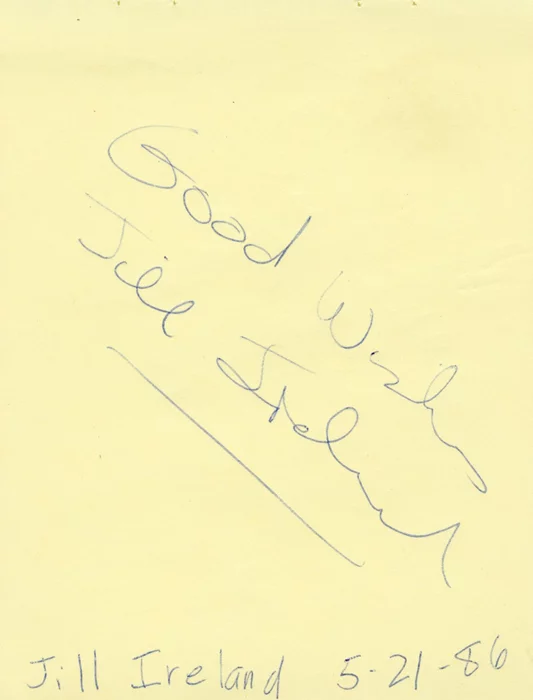 Good Wishes
Jill Ireland
Jill Ireland 5-21-86